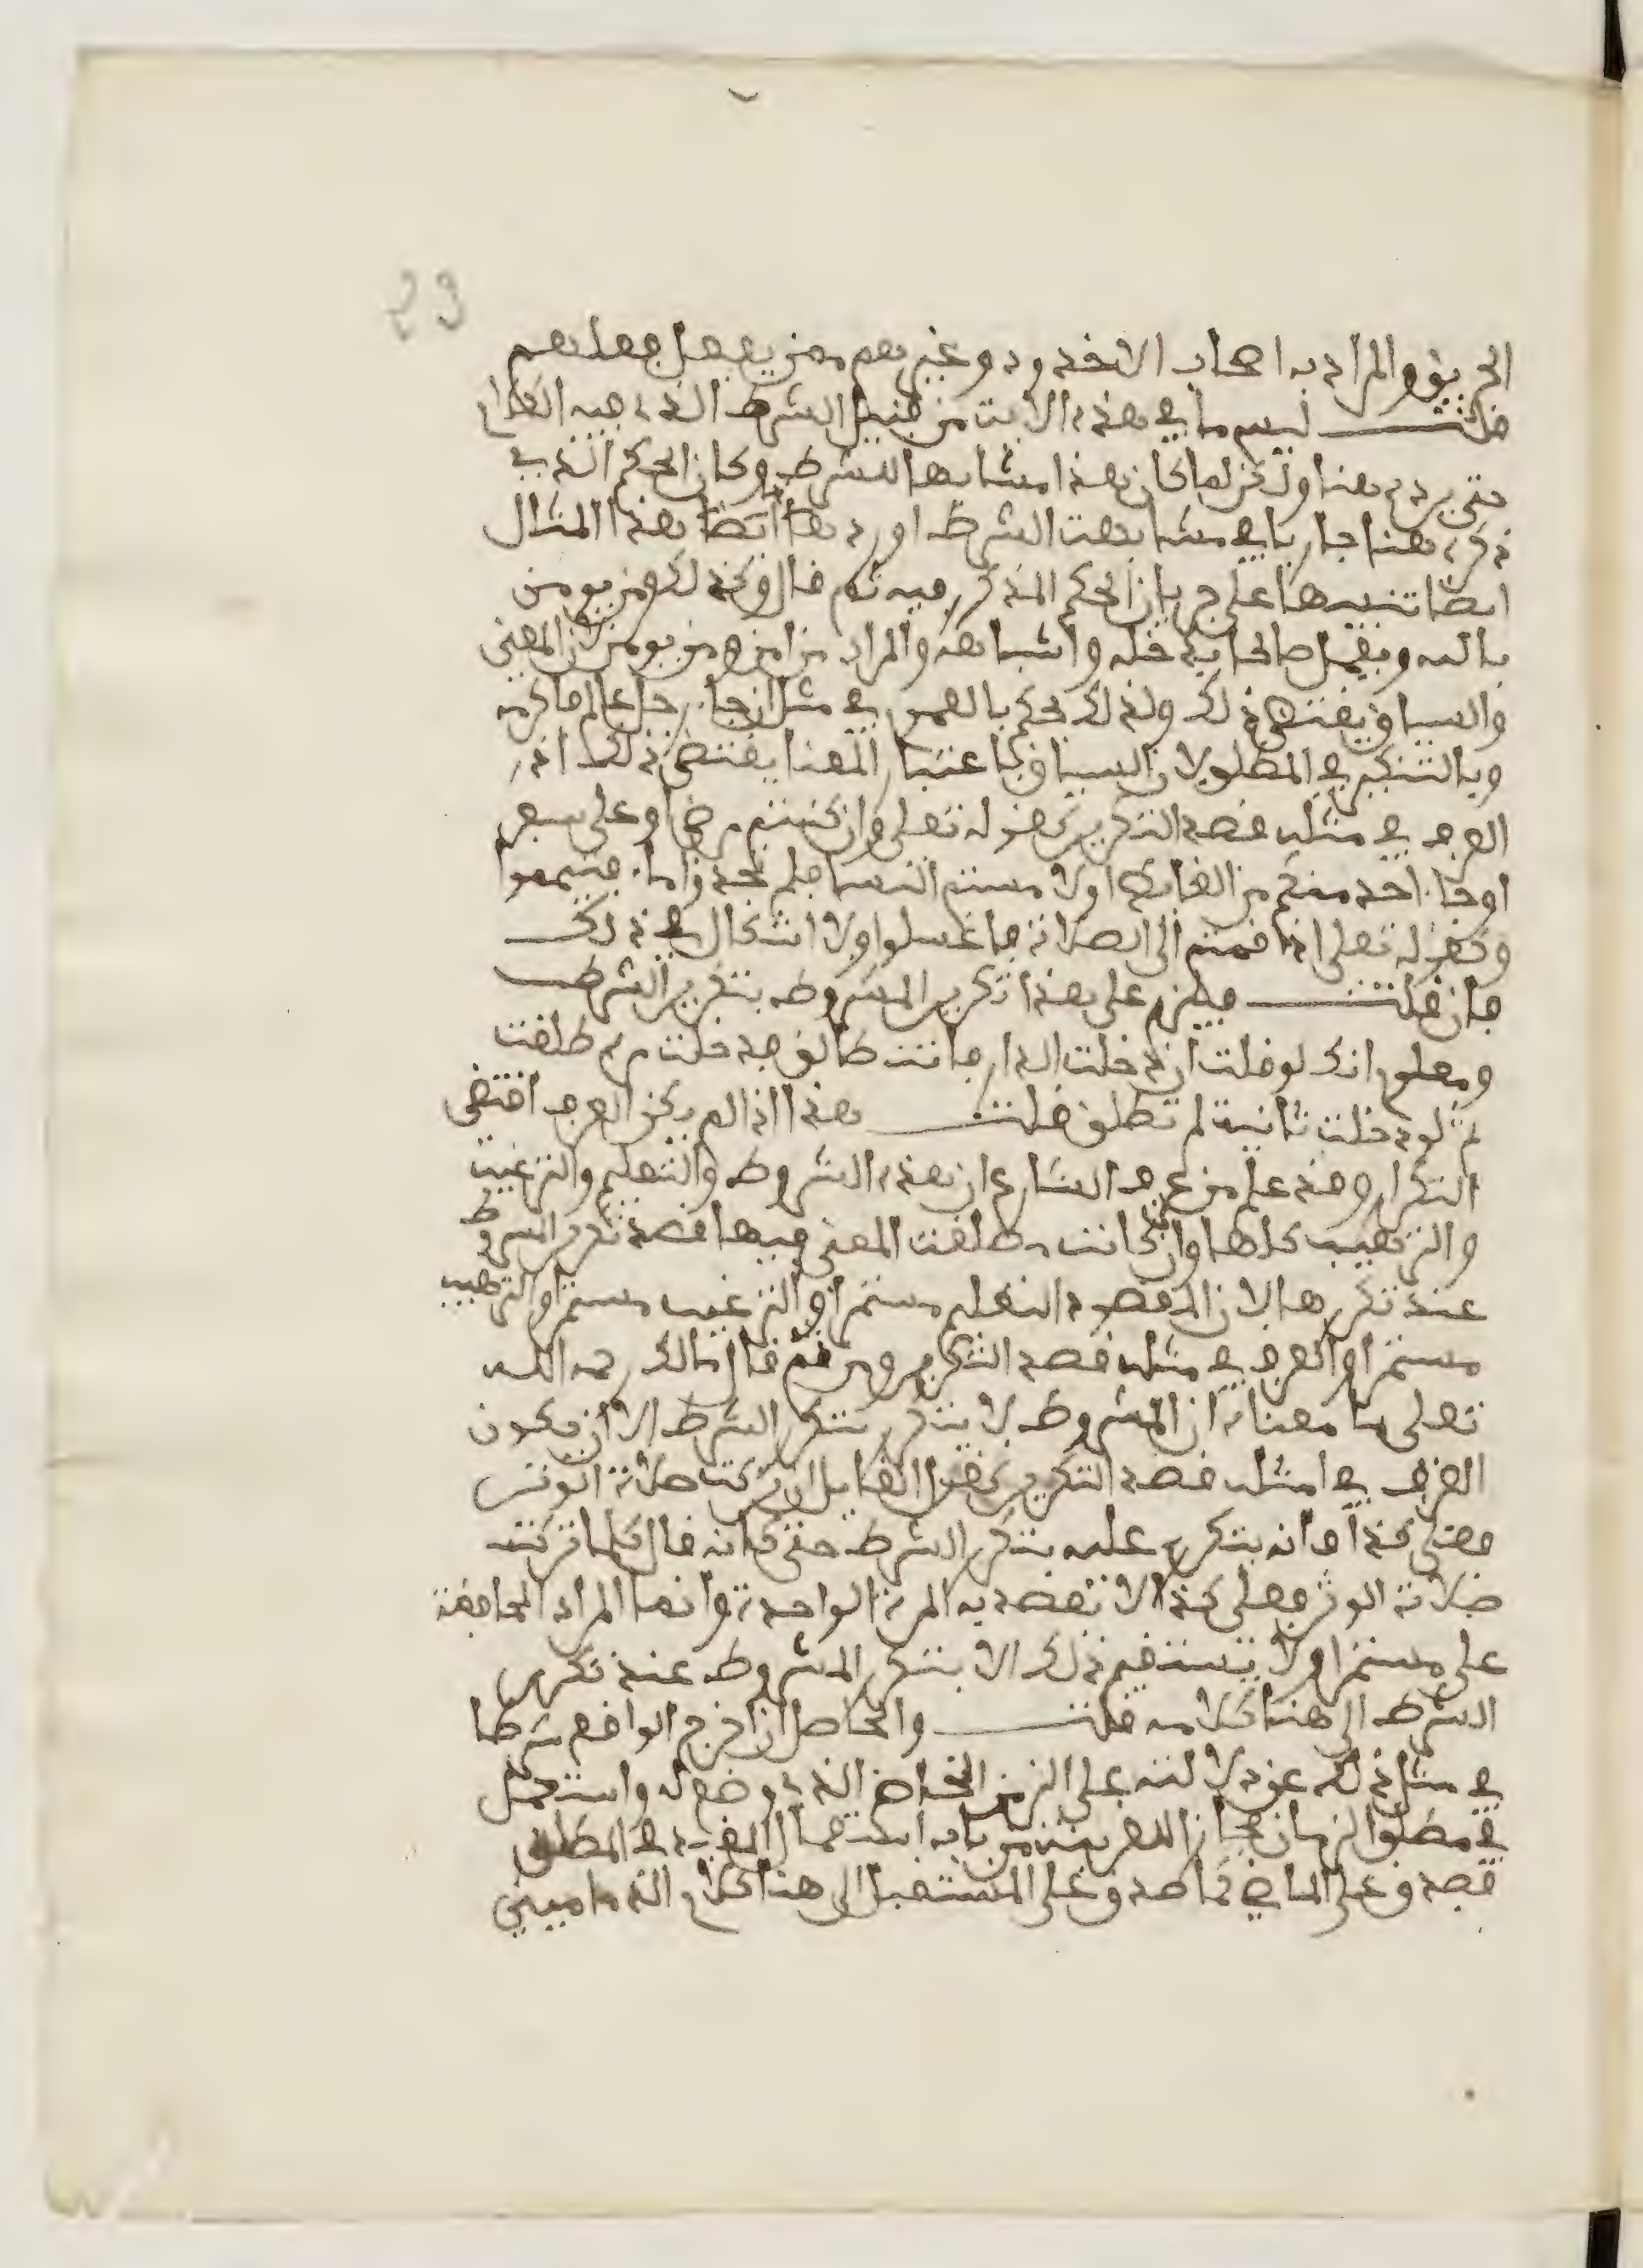 29
الحريق والمراد به اصحاب الاخدود وغيرهم ممن يفعل فعلهم
قلت ليس ما في هذه الايت من قبيل الشرط الذي فيه الكلام
حتى يرد هنا ولكن لما كان هذا مشابها للشرط وكان الحكم الذي
ذكره هنا جاريا في مشابهت الشرط اورد هنا ايضا هذا المثال
ايضا تنبيها على جريان الحكم المذكور فيه ثم قال وكذلك ومن يومن
بالله ويعمل صالحا يدخله واشباهه والمراد من امن ومن يومن لان المعنى
والسياق يقتضي ذلك ولذلك حكم بالعموم في مثل ان جاء رجل عالم فاكرمه
وبالتنكير في المطلوب لان السياق باعتبار المعنا يقتضي ذلك اذ
العرف في مثله قصد التكرير كقوله تعلى وان كنتم مرضى او على سفر
او جاء احد منكم من الغايط او لامستم النسا فلم تجدوا ماء فتيمموا
وكقوله تعلى اذا قمتم الى الصلاة فاغسلوا ولا اشكال في ذلك
فان قلت فيلزم على هذا تكرير المشروط بتكرير الشرط
ومعلوم انك لو قلت ان دخلت الدار فانت طالق فدخلت مرة طلقت
ثم لو دخلت ثانية لم تطلق قلت هذا اذا لم يكن العرف اقتضى
التكرار وقد علم من عرف الشارع ان هذه الشروط والتعليم والترغيب
والترهيب كلها وان كانت مطلقت المعنى فيها قصد تكرر المشروط
عند تكررها لان المقصود التعليم مستمرا والترغيب مستمرا والترهيب
مستمرا والعرف في مثله قصد التكرير ومن ثم قال مالك رحمه الله
تعلى ما معناه ان المشروط لا يتكرر بتكرر الشرط الا ان يكون
العرف في امثله قصد التكرير كقول القايل ان تركت صلاة الوتر
فعلي كذا فانه يتكرر عليه بتكرر الشرط حتى كانه قال كلما تركت
صلاة الوتر فعلي كذا لا تقصد به المرة الواحدة وانما المراد المحافظة
على مستمرا ولا يستقيم ذلك الا بتكرر المشروط عند تكرر
الشرط الى هنا كلامه قلت والحاصل ان اخرج الواقع شرطا
في مثل ذلك عن دلالته على الزمن الخاص الذي وضع له واستعمل
في مطلق الزمان مجازا لقرينة من باب استعمال المقيد في المطلق
فصدق على الماضي كما صدق على المستقبل الى هنا كلام الدماميني